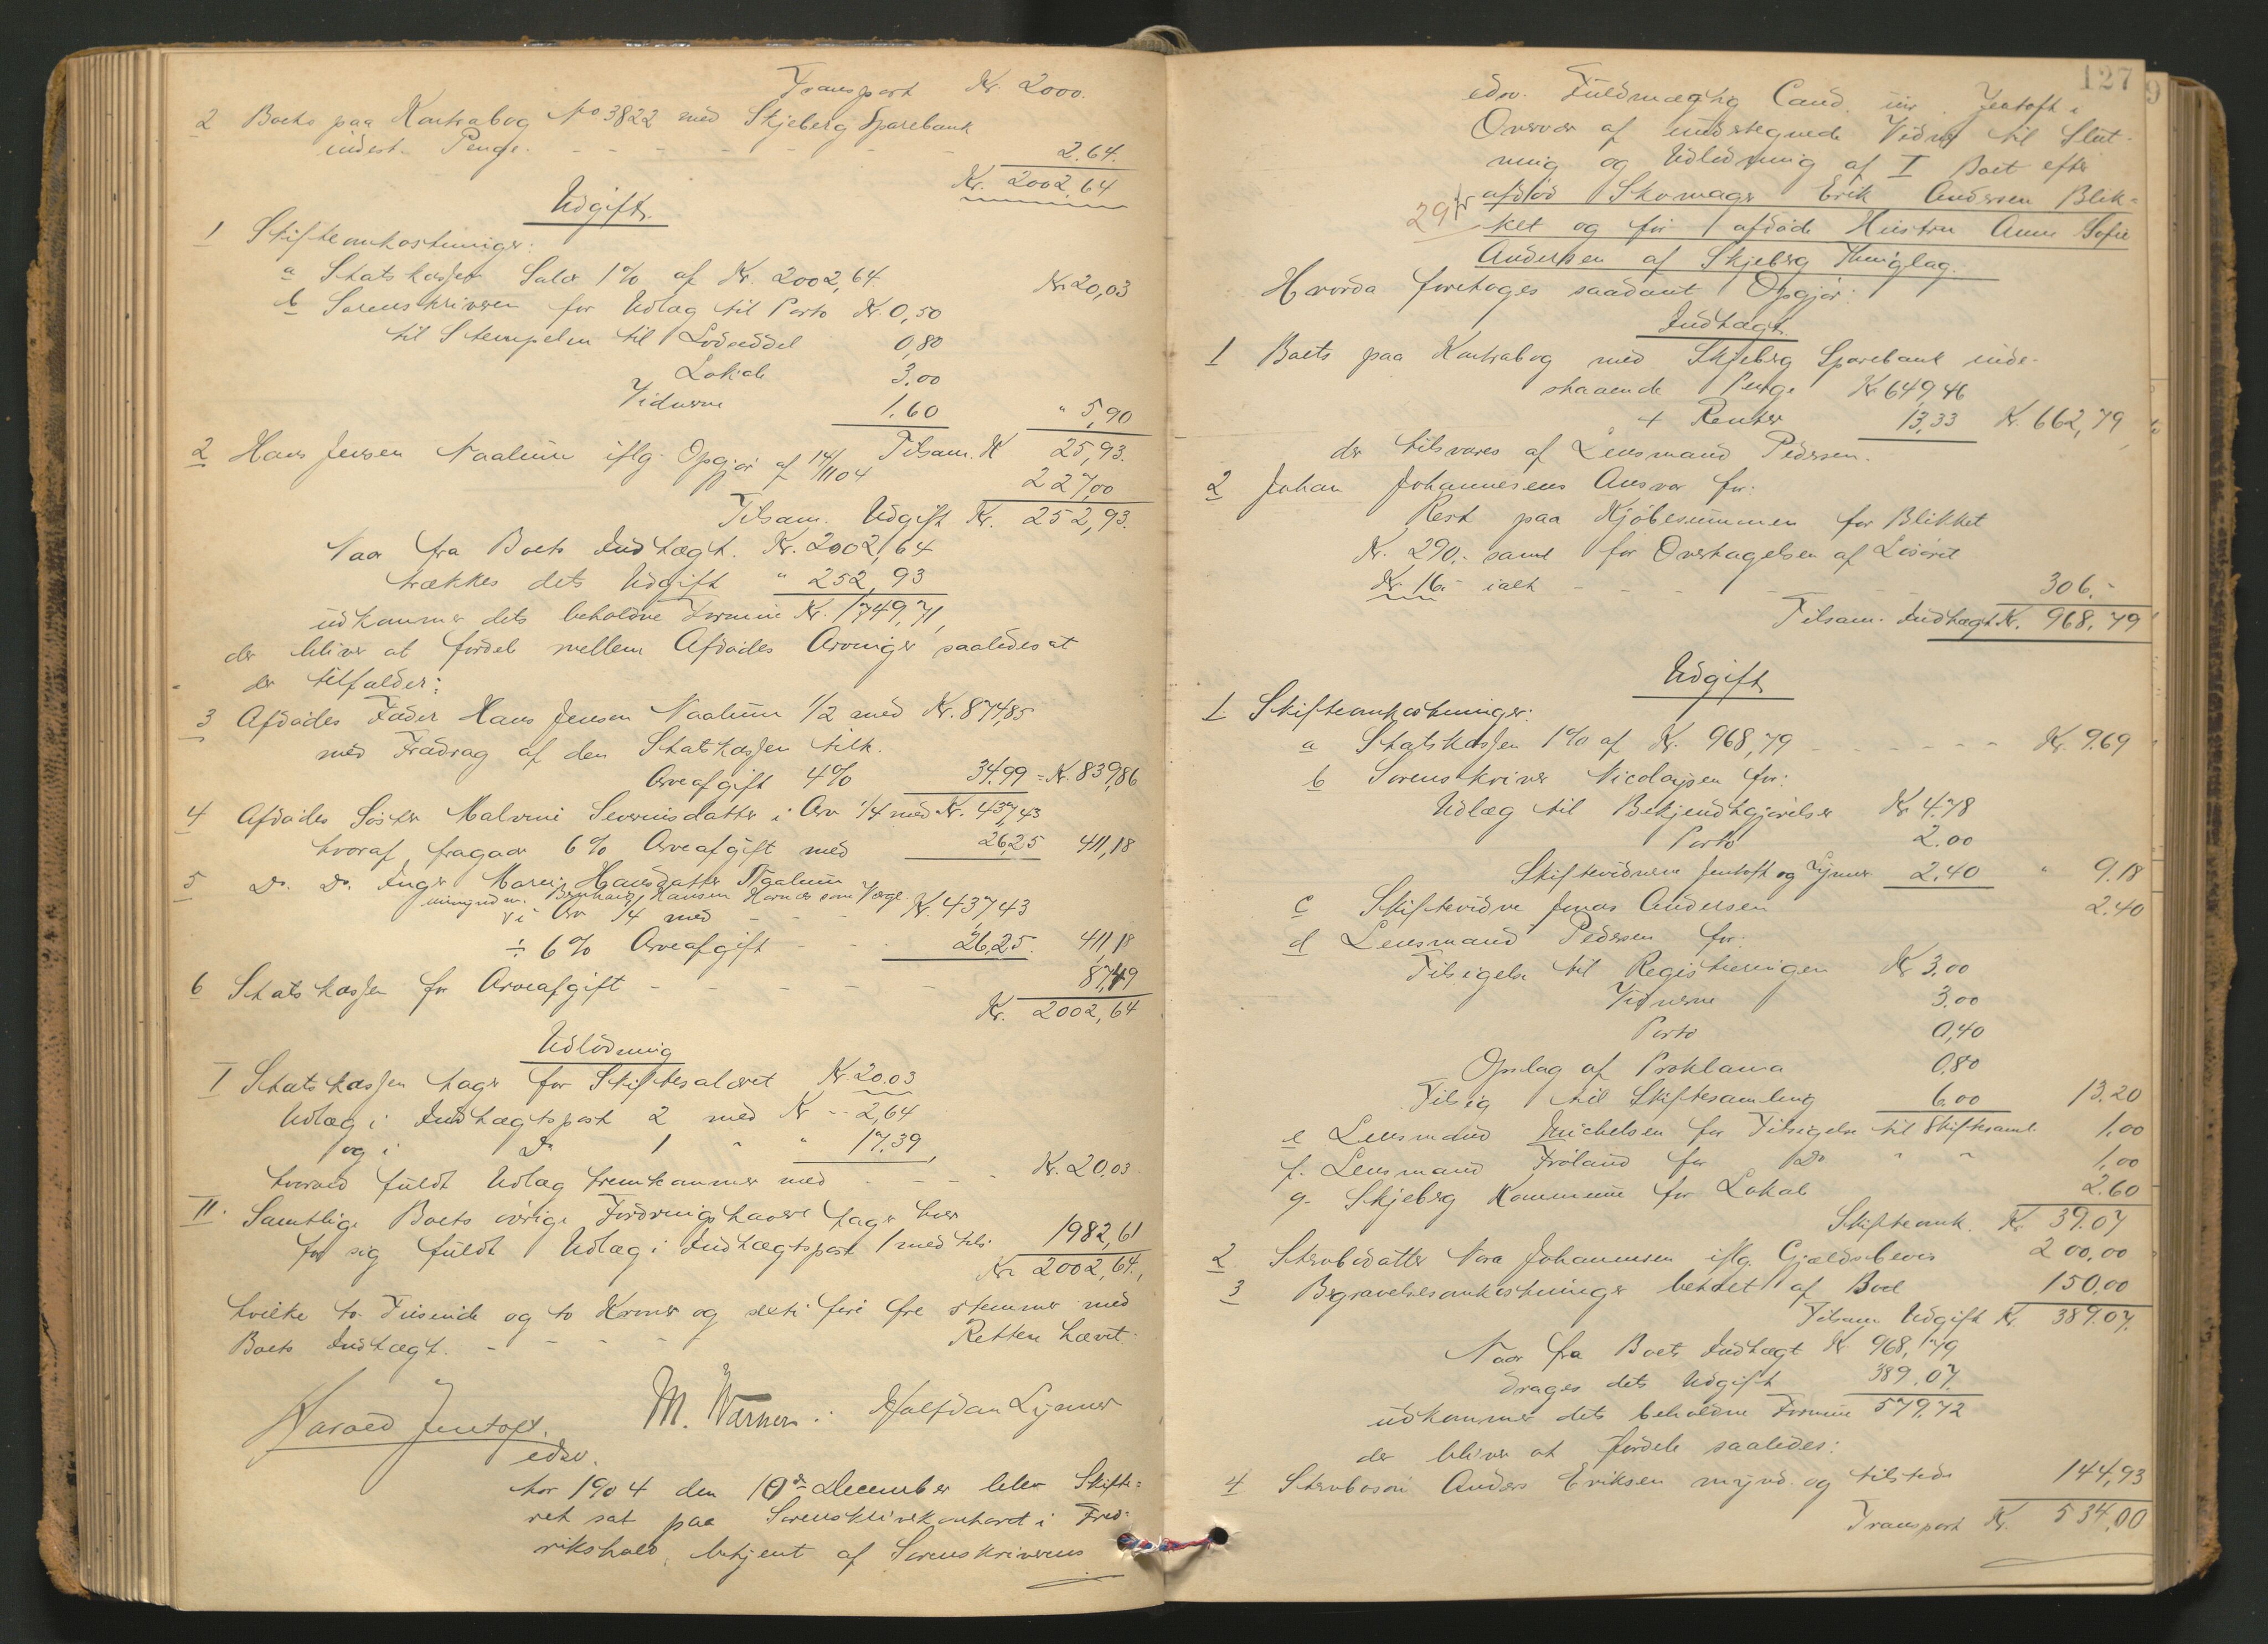 Transport Kr. 2000.
2 Boets paa Kontrabog No 3822 med Skjeberg Sparebank
indest. Penge. - - - - - - 2.64.
Kr. 2002,64
Udgift.
1 Skifteomkostninger:
a Statskassen Salær 1% af Kr. 2002,64. Kr. 20,03
b Sorenskriveren for Udlæg til Porto Kr. 0,50
til Stempelm. til Lodseddel 0,80
Lokale 3.00
Vidnerne 1.60 " 5,90
Tilsam. K 25,93.
2 Hans Jensen Naalum iflg. Opgjør af 14/11 04 227,00
Tilsam. Udgift Kr. 252,93.
Naar fra Boets Indtægt. Kr. 2002,64
trækkes dets Udgift " 252,93
udkommer dets beholdne Formue Kr. 1749,71,
der bliver at fordele mellem Afdødes Arvinger saaledes at
der tilfalder:
3 Afdødes Fader Hans Jensen Naalum 1/2 med Kr. 874,85
med Fradrag af den Statskassen tilk.
Arveafgift 4% 34.99 = Kr. 839,86
4 Afdødes Søster Malvine Severinsdatter i Arv 1/4 med Kr. 437,43
hvoraf fragaar 6% Arveafgift med 26,25 411,18
5 Do. Do. Inger Marie Hansdatter Naalum
umyndm. Bernhard Hansen Hornæs som Værge
i Arv 1/4 med - - - Kr. 437,43
÷ 6% Arveafgift - - - 26,25. 411,18
6 Statskassen for Arveafgift - - - - - 87,49
Kr. 2002,64
Udlodning
I Statskassen tager for Skiftesalæret Kr. 20.03
Udlæg i Indtægtspost 2 med Kr -- 2,64
og i Do 1 " " 17.39,
hvorved fuldt Udlæg fremkommer med - - - - Kr. 20.03
II. Samtlige Boets øvrige Fordringshavere tager hver
for sig fuldt Udlæg i Indtægtspost 1 med tils. 1982,61
Kr 2002,64.,
hvilke to Tusinde og to Kroner og sexti fire Øre stemmer med
Boets Indtægt. - - - - Retten hævet.
Harald Jentoft. M. Warner. Halfdan Lyner
edsv.
Aar 1904 den 10de December blev Skifte-
ret sat paa Sorenskriverkontoret i Fred-
rikshald, betjent af Sorenskriverens
127
9
edsv. Fuldmægtig Cand. jur Jentoft i
Overvær af undertegnede Vidner til Slut-
ning og Udlodning af I Boet efter
29 afdød Skomager Erik Andersen Blik-
ket og før afdøde Hustru Anne Sofie
Andersen af Skjeberg Thinglag.
Hvorda foretoges saadant Opgjør:
Indtægt.
1 Boets paa Kontrabog med Skjeberg Sparebank inde-
staaende Penge Kr. 649,46
+ Renter 13,33 Kr. 662,79
der tilsvares af Lensmand Pedersen.
2 Johan Johannesens Ansvar for:
Rest paa Kjøbesummen for Blikket
Kr. 290,- samt for Overtagelsen af Løsøret
Kr. 16,- ialt - - - - - - 306.-
Tilsam. Indtægt Kr. 968,79
Udgift
1 Skifteomkostninger:
a Statskassen 1% af Kr. 968,79 - - - - - - Kr. 9.69
b Sorenskriver Nicolaysen for:
Udlæg til Bekjendtgjørelser Kr 4.78
Porto 2.00
Skiftevidnerne Jentoft og Lyner 2.40 " 9.18
c Skiftevidne Jonas Andersen 2.40
d Lensmand Pedersen for:
Tilsigelse til Registreringen Kr 3.00
Vidnerne 3.00
Porto 0,40
Opslag af Proklama 0.80
Tilsig til Skiftesamling 6.00 13.20
e Lensmand Michelsen for Tilsigelse til Skiftesaml. 1.00
f. Lensmand Frøland for Do " " 1,00
g. Skjeberg Kommune for Lokale 2.60
Skifteomk. Kr. 39.07
2. Stervbodatter Nora Johannesen iflg. Gjældsbevis 200.00
3 Begravelsesomkostninger betalt af Boet 150.00
Tilsam. Udgift Kr. 389.07.
Naar fra Boets Indtægt Kr 968,79
drages dets Udgift 389.07.
udkommer dets beholdne Formue 579.72
der bliver at fordele saaledes:
4 Stervbosøn Anders Eriksen mynd. og tilstede 144,93
Transport Kr. 534,00